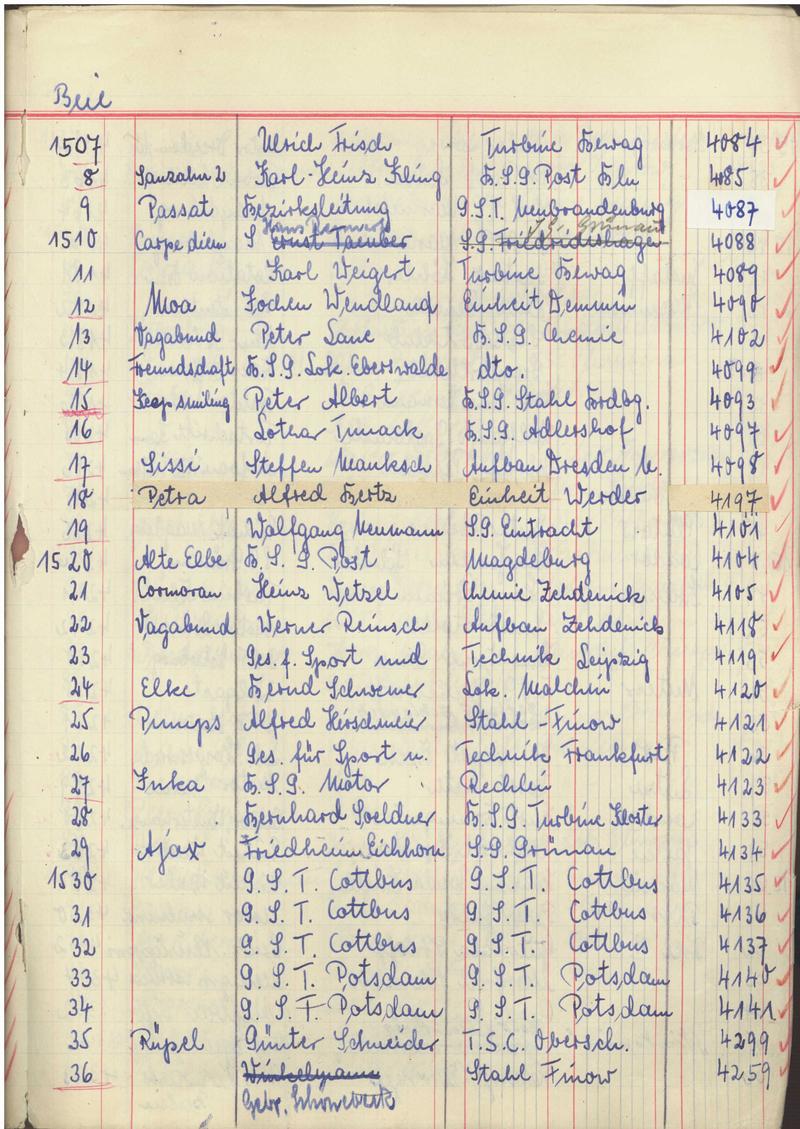 Beil
1507 Ulrich Frisch Turbine Bewag 4084
8 Sanzahn 2 Karl-Heinz Kling B.S.G. Post Bln 4085
9 Passat Bezirksleitung G.S.T. Neubrandenburg 4087
Hans S.G. Grünau
1510 Carpe diem S Ernst Taeuber S.G. Friedrichshagen 4088
11 Karl Weigert Turbine Bewag 4089
12 Moa Jochen Wendland Einheit Demmin 4090
13 Vagabund Peter Lane B.S.G. Chemie 4102
14 Freundschaft B.S.G. Lok. Eberswalde dto. 4099
15 Keep smiling Peter Albert B.S.G. Stahl Brdbg. 4093
16 Lothar B.S.G. Adlershof 4097
17 Sissi Steffen Manksch Aufbau Dresden M. 4098
18 Petra Alfred Bertz Einheit Werder 4197
19 Wolfgang Neumann S.G. Eintracht 4101
1520 Alte Elbe B.S.G. Post Magdeburg 4104
21 Cormoran Heinz Wetzel Chemie Zehdenick 4105
22 Vagabund Werner Reinsch Aufbau Zehdenick 4118
23 Ges. f. Sport und Technik Leipzig 4119
24 Elke Bernd Schwemer Lok. Malchin 4120
25 Pumps Alfred Hirschmeier Stahl-Finow 4121
26 Ges. für Sport u. Technik Frankfurt 4122
27 Inka B.S.G. Motor Rechlin 4123
28 Bernhard Soeldner B.S.G. Turbine Kloster 4133
29 Ajax Friedheim Eichhorn S.G. Grünau 4134
1530 G.S.T. Cottbus G.S.T. Cottbus 4135
31 G.S.T. Cottbus G.S.T. Cottbus 4136
32 G.S.T. Cottbus G.S.T. Cottbus 4137
33 G.S.T. Potsdam G.S.T. Potsdam 4140
34 G.S.T. Potsdam G.S.T. Potsdam 4141
35 Rüpel Günter Schneider T.S.C. Obersch. 4299
36 Winkelmann Stahl Finow 4259
Gebr. Schonebeck